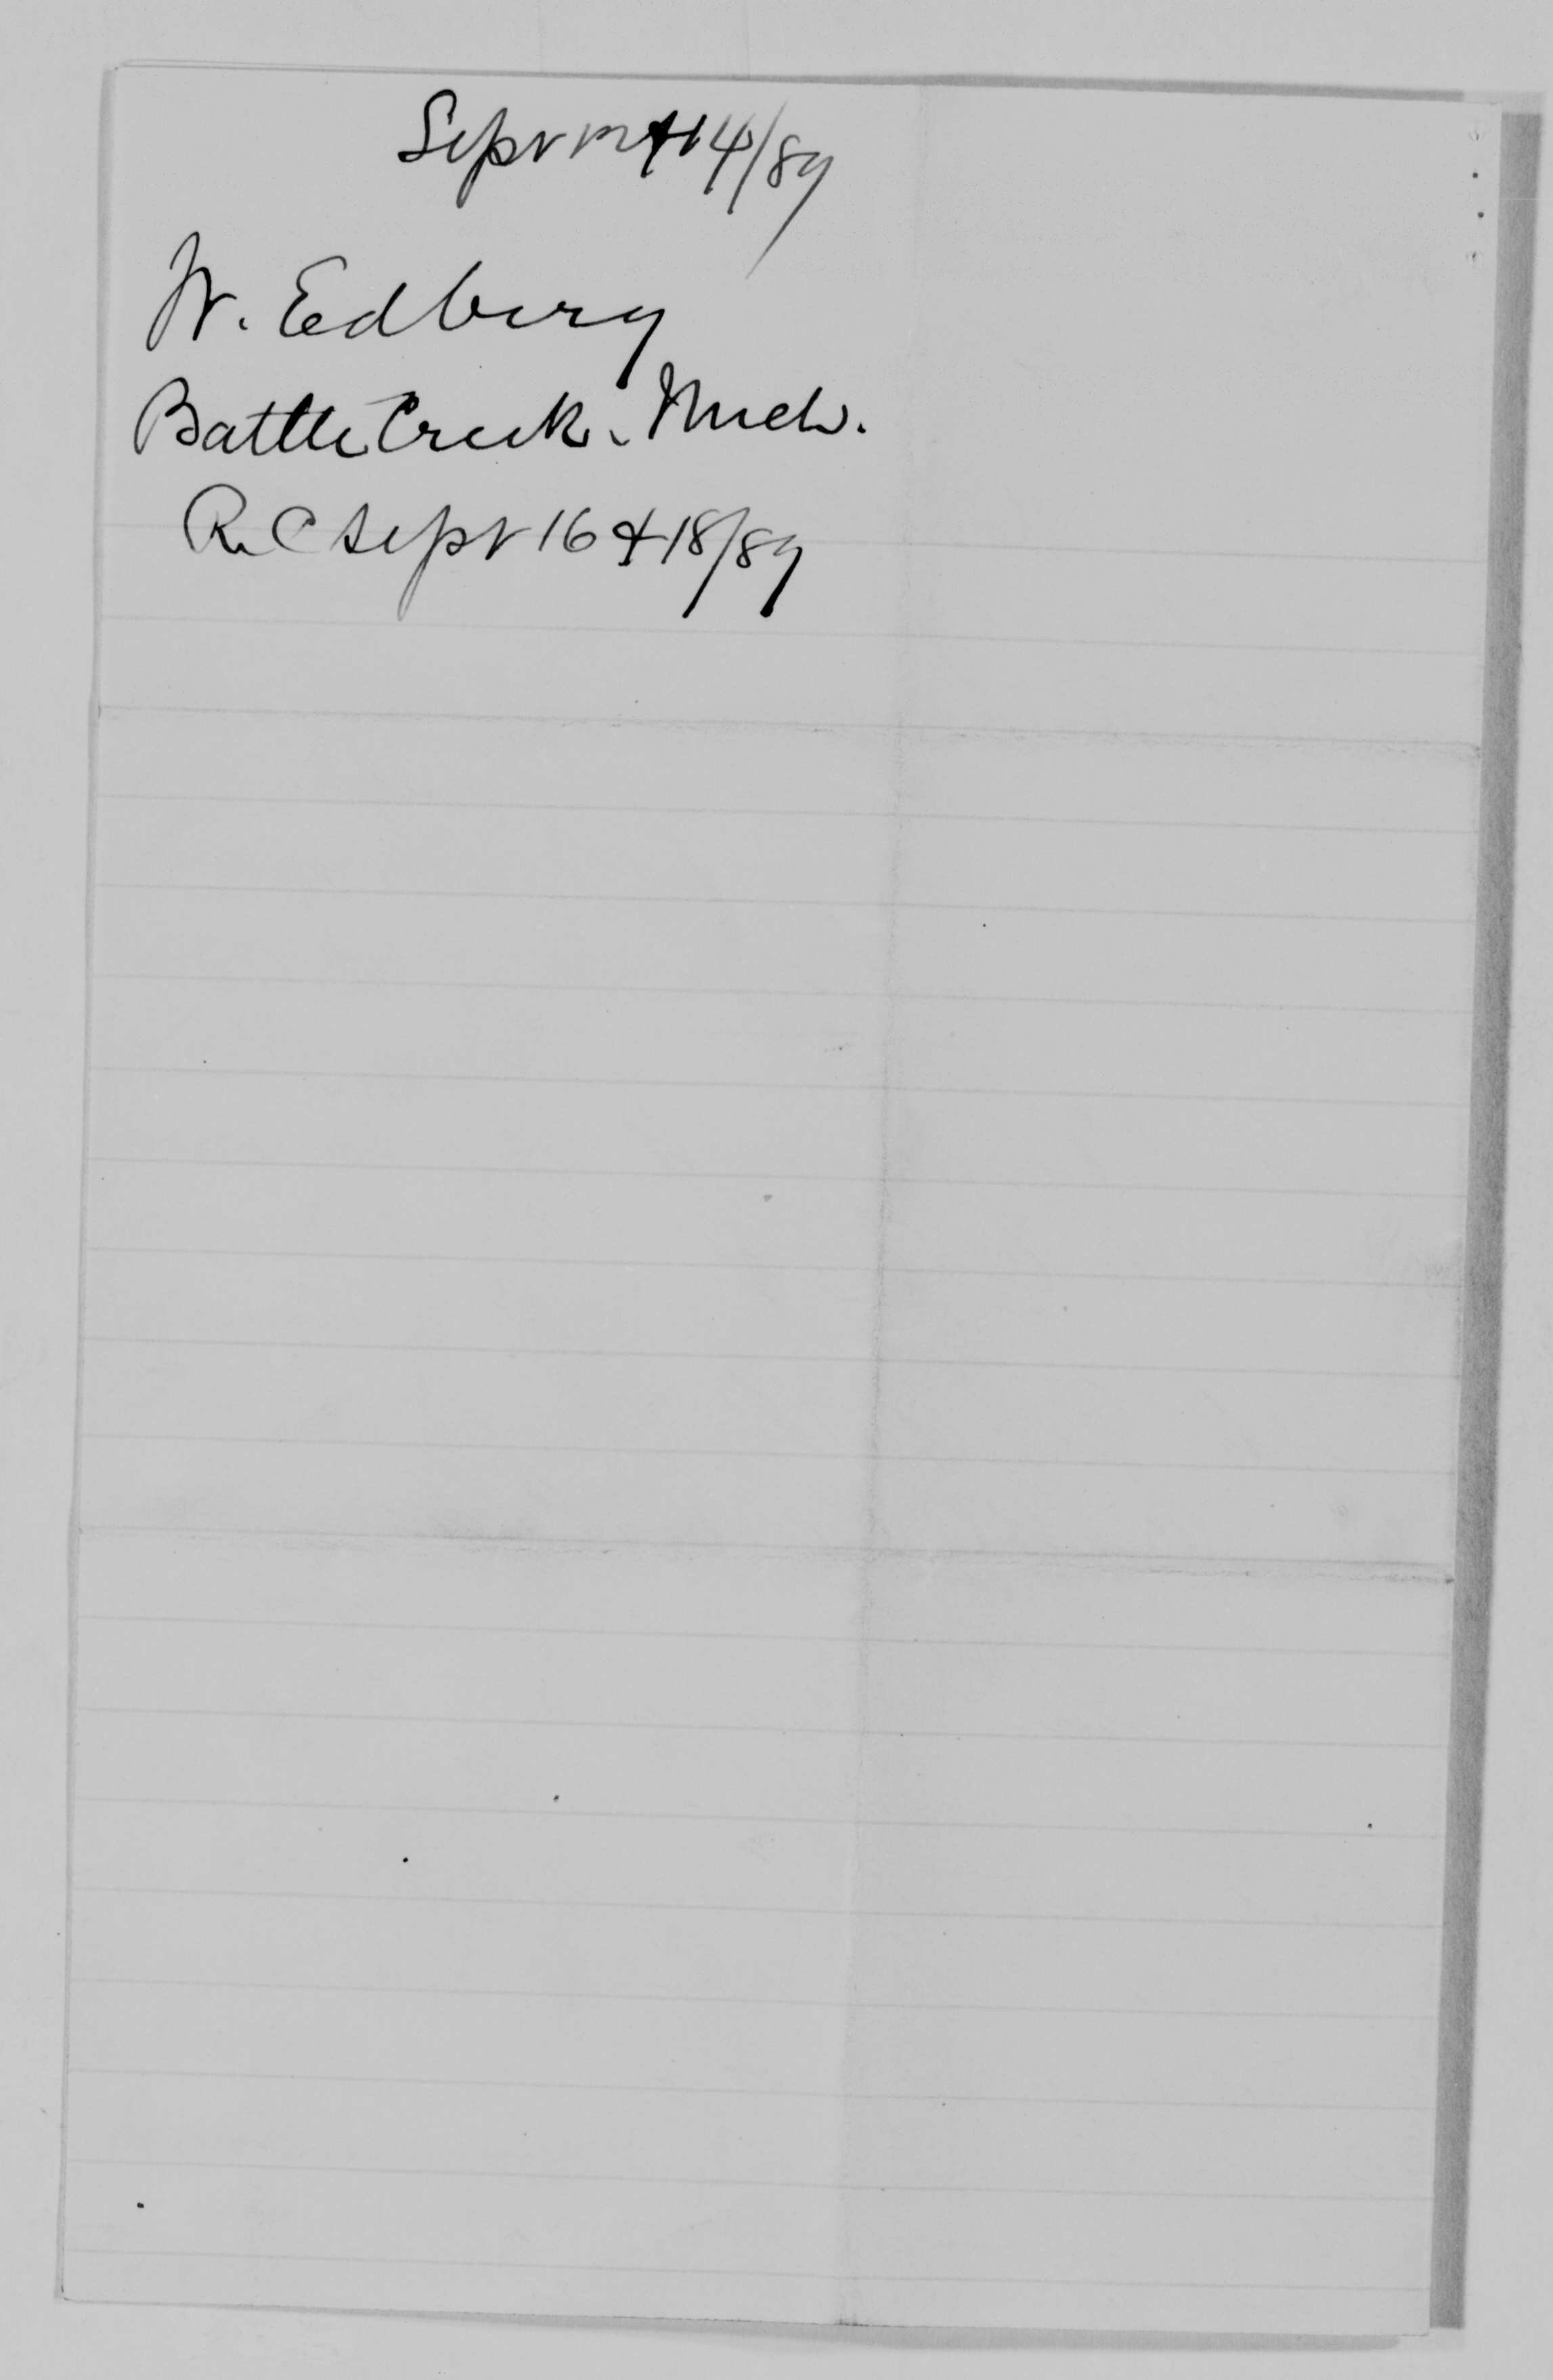 Sept 12 & 14/89
W. Edberg
Battle Creek. Mich.
R. C Sept 16 & 18/89